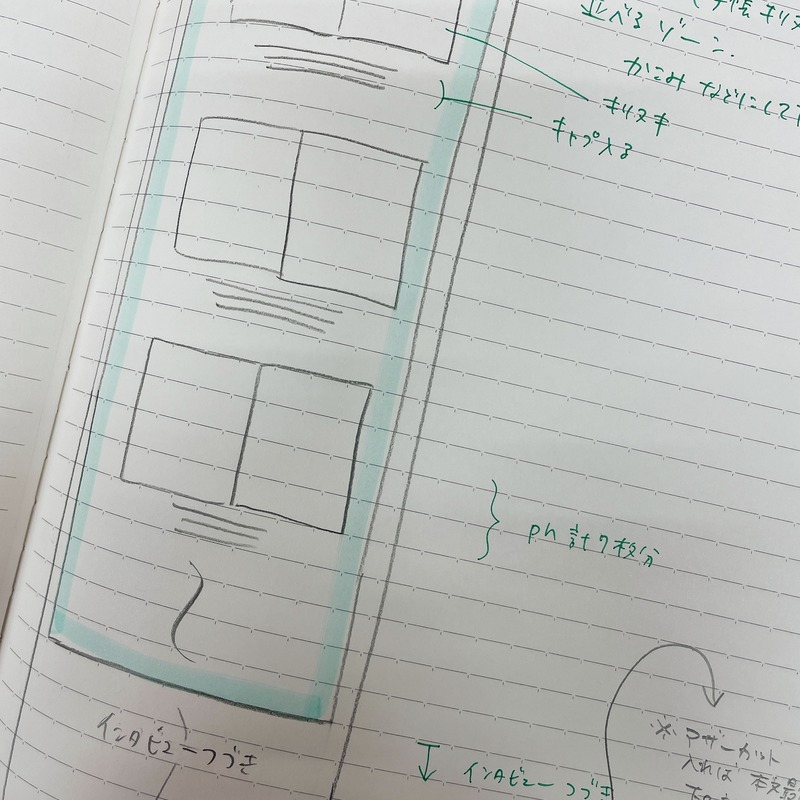 手帳キリヌ
べるゾーン.
かこみなどにして
キリヌキ
キャプ入る
ph 計7枚分
インタビューつづき
インタビューつづき
※アザーカット
入れば 本文最